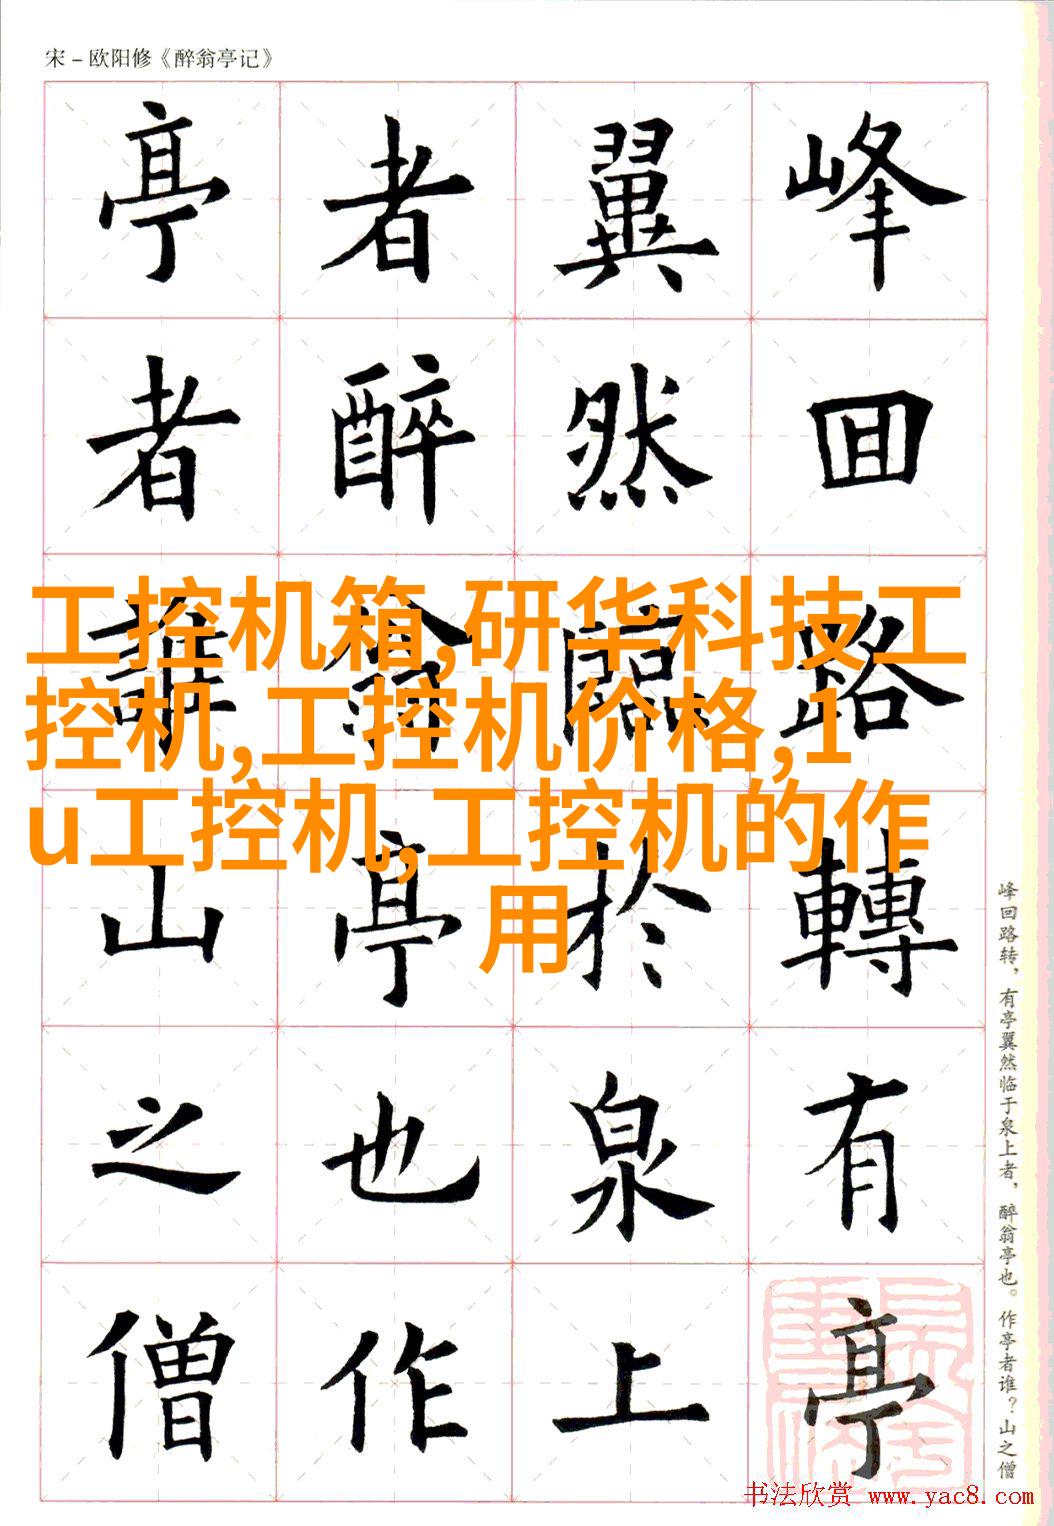 宋－欧阳修《醉翁亭记》
峰囬路轉有亭
翼然臨於泉上
者醉翁亭也作
亭者誰山之僧
工控机箱,研华科技工
控机,工控机价格,1
u工控机,工控机的作
用
峰回路转，有亭翼然临于泉上者，醉翁亭也。作亭者谁？山之僧
书法欣赏 www.yac8.com